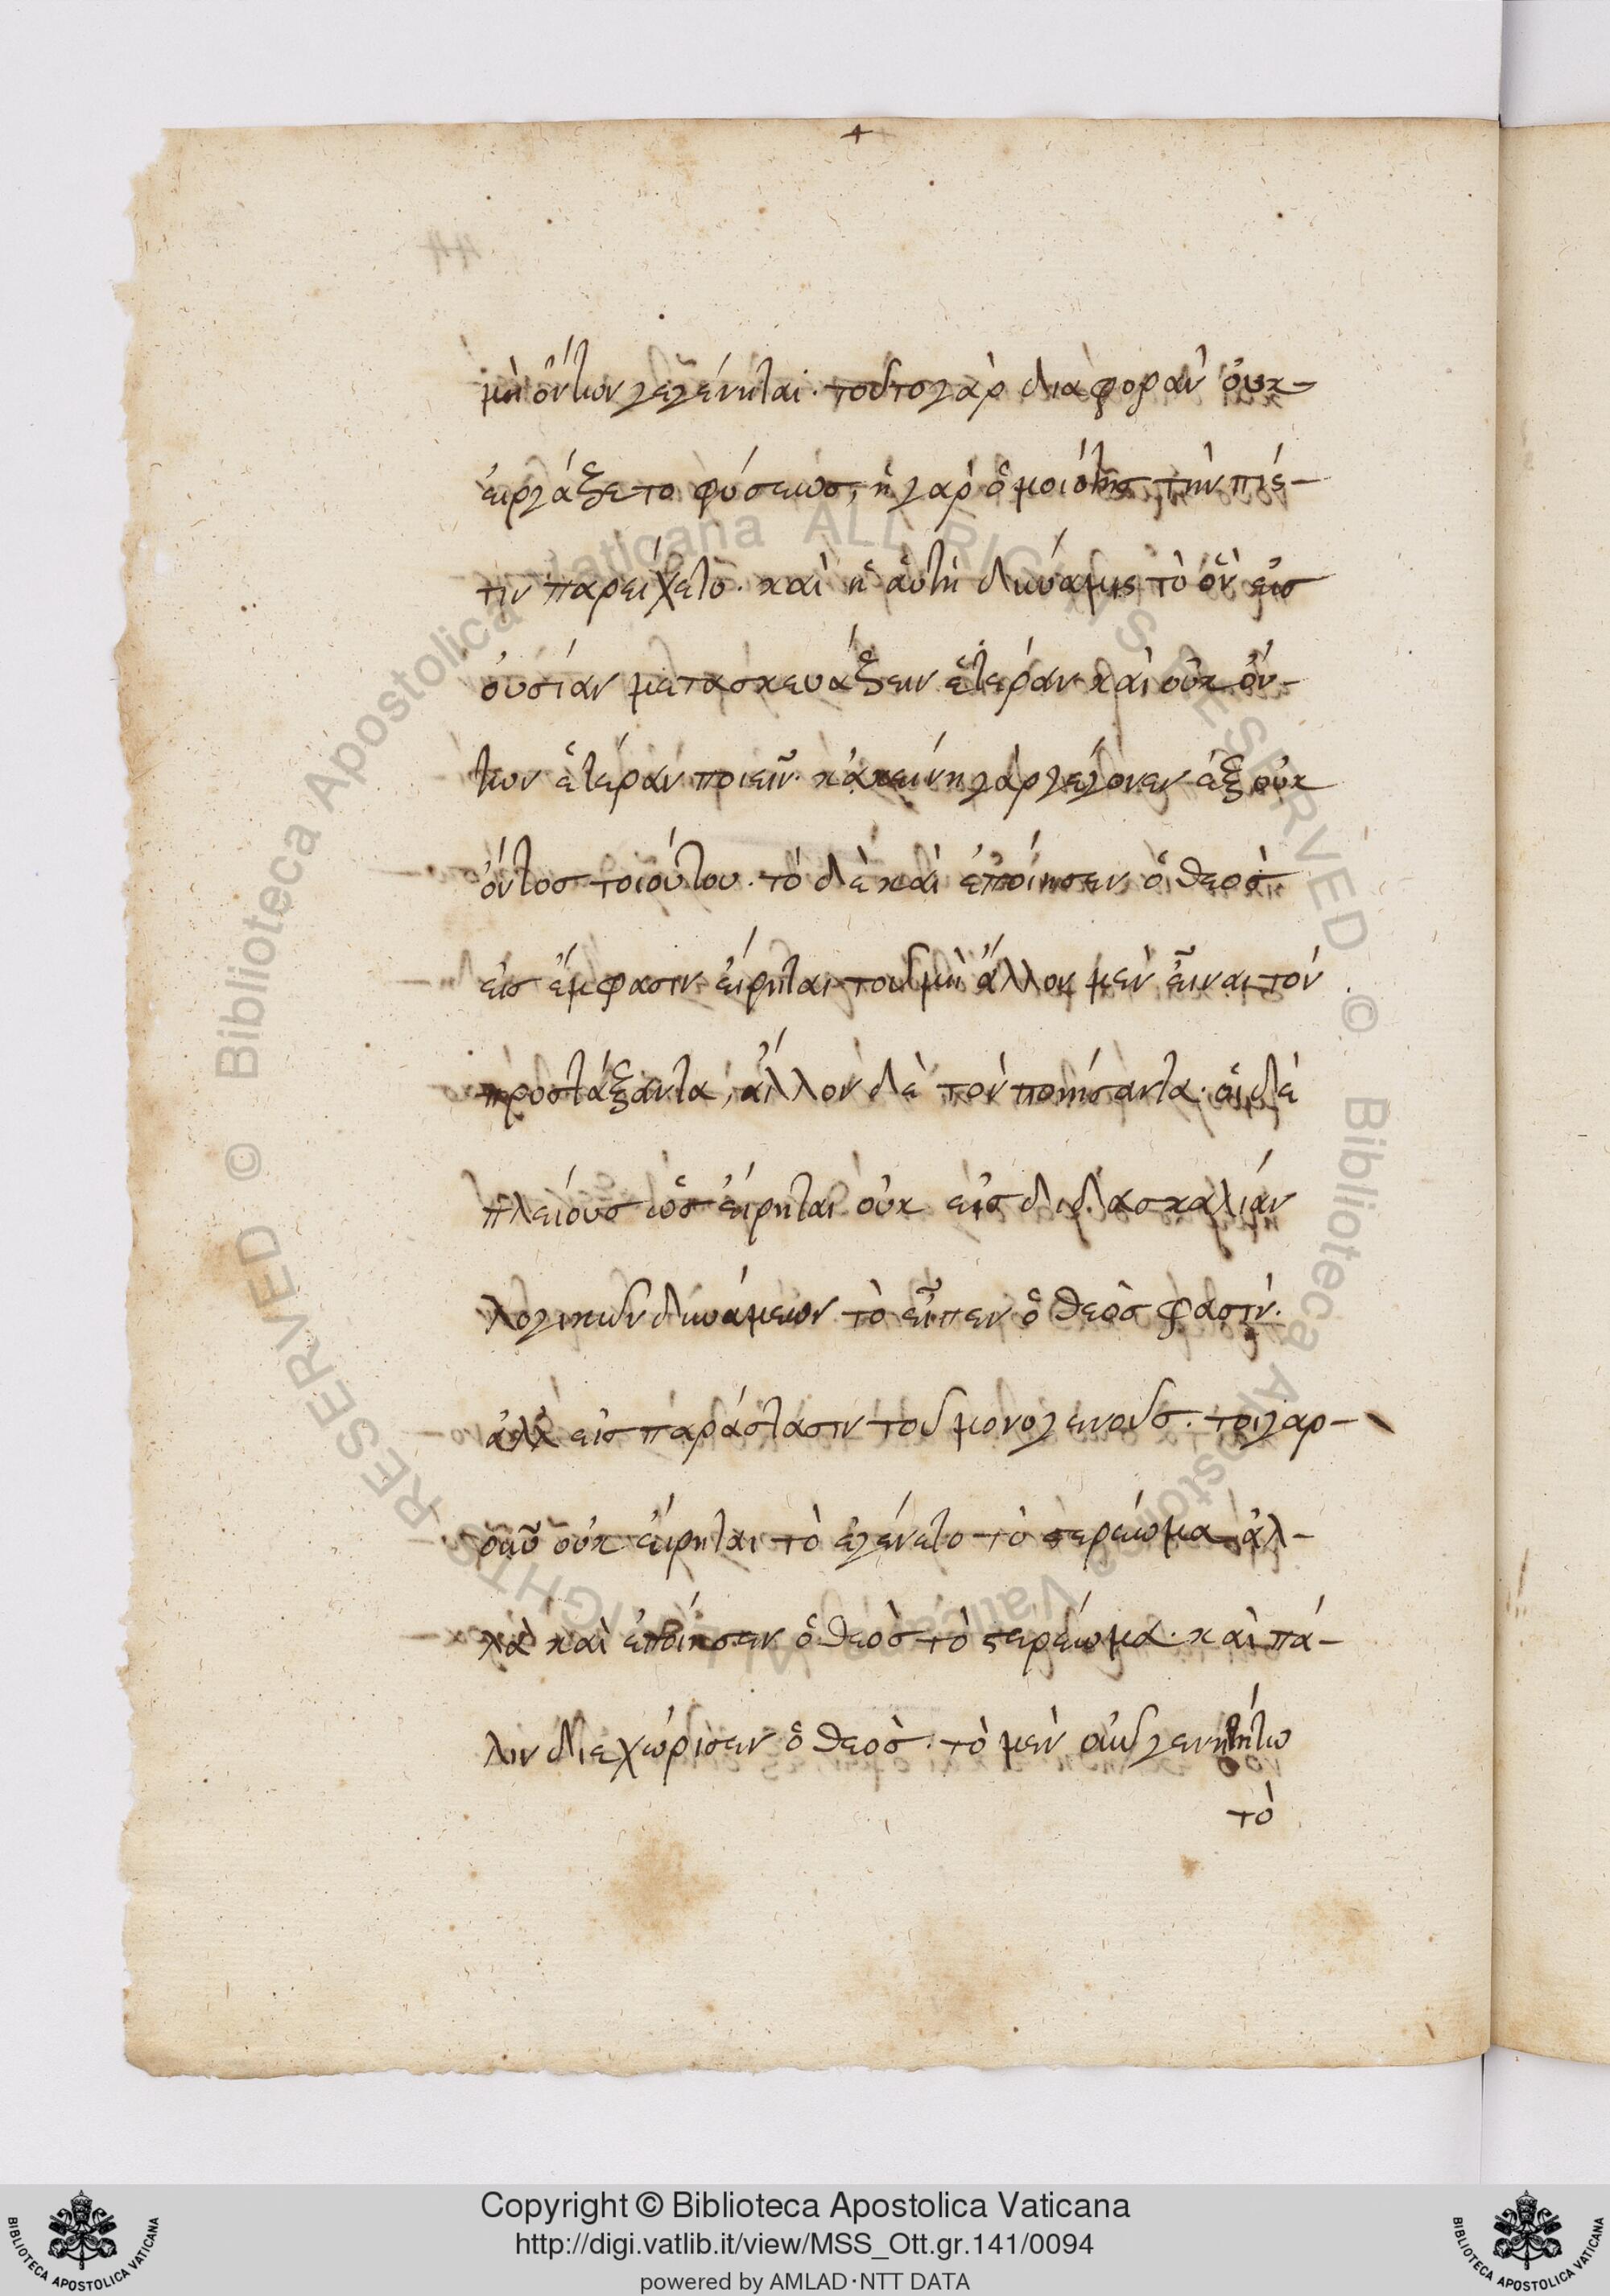 μὴ ὄντων γεγένηται· τοῦτο γὰρ διαφορὰν οὐκ-
εἰργάζετο φύσεως, ἡ γὰρ ὁμοιότης τὴν πίσ-
τιν παρείχετο· καὶ ἡ αὐτὴ δύναμις τὸ ὂν εἰς
οὐσίαν μετασκευάζειν ἑτέραν καὶ οὐκ ὄν-
των ἑτέραν ποιεῖν· κἀκείνη γὰρ γέγονεν ἐξ οὐκ
ὄντος τοιούτου· τὸ δὲ καὶ ἐποίησεν ὁ θεὸς
εἰς ἔμφασιν εἴρηται τοῦ μὴ ἄλλον μὲν εἶναι τὸν
προστάξαντα, ἄλλον δὲ τὸν ποιήσαντα· οἱ δὲ
πλείους ὡς εἴρηται οὐκ εἰς διδασκαλίαν
λογικῶν δυνάμεων τὸ εἶπεν ὁ θεὸς φασίν·
ἀλλ' εἰς παράστασιν τοῦ μονογενοῦς· τοιγαρ-
οῦν οὐκ εἴρηται τὸ ἐγένετο τὸ στερέωμα ἀλ-
λὰ καὶ ἐποίησεν ὁ θεὸς τὸ στερέωμα· καὶ πά-
λιν διεχώρισεν ὁ θεὸς· τὸ μὲν οὖν γενηθήτω
τὸ
Copyright © Biblioteca Apostolica Vaticana
http://digi.vatlib.it/view/MSS_Ott.gr.141/0094
powered by AMLAD·NTT DATA
BIBLIOTECA APOSTOLICA VATICANA
BIBLIOTECA APOSTOLICA VATICANA
© Biblioteca Apostolica Vaticana ALL RIGHTS RESERVED © Biblioteca Apostolica Vaticana ALL RIGHTS RESERVED